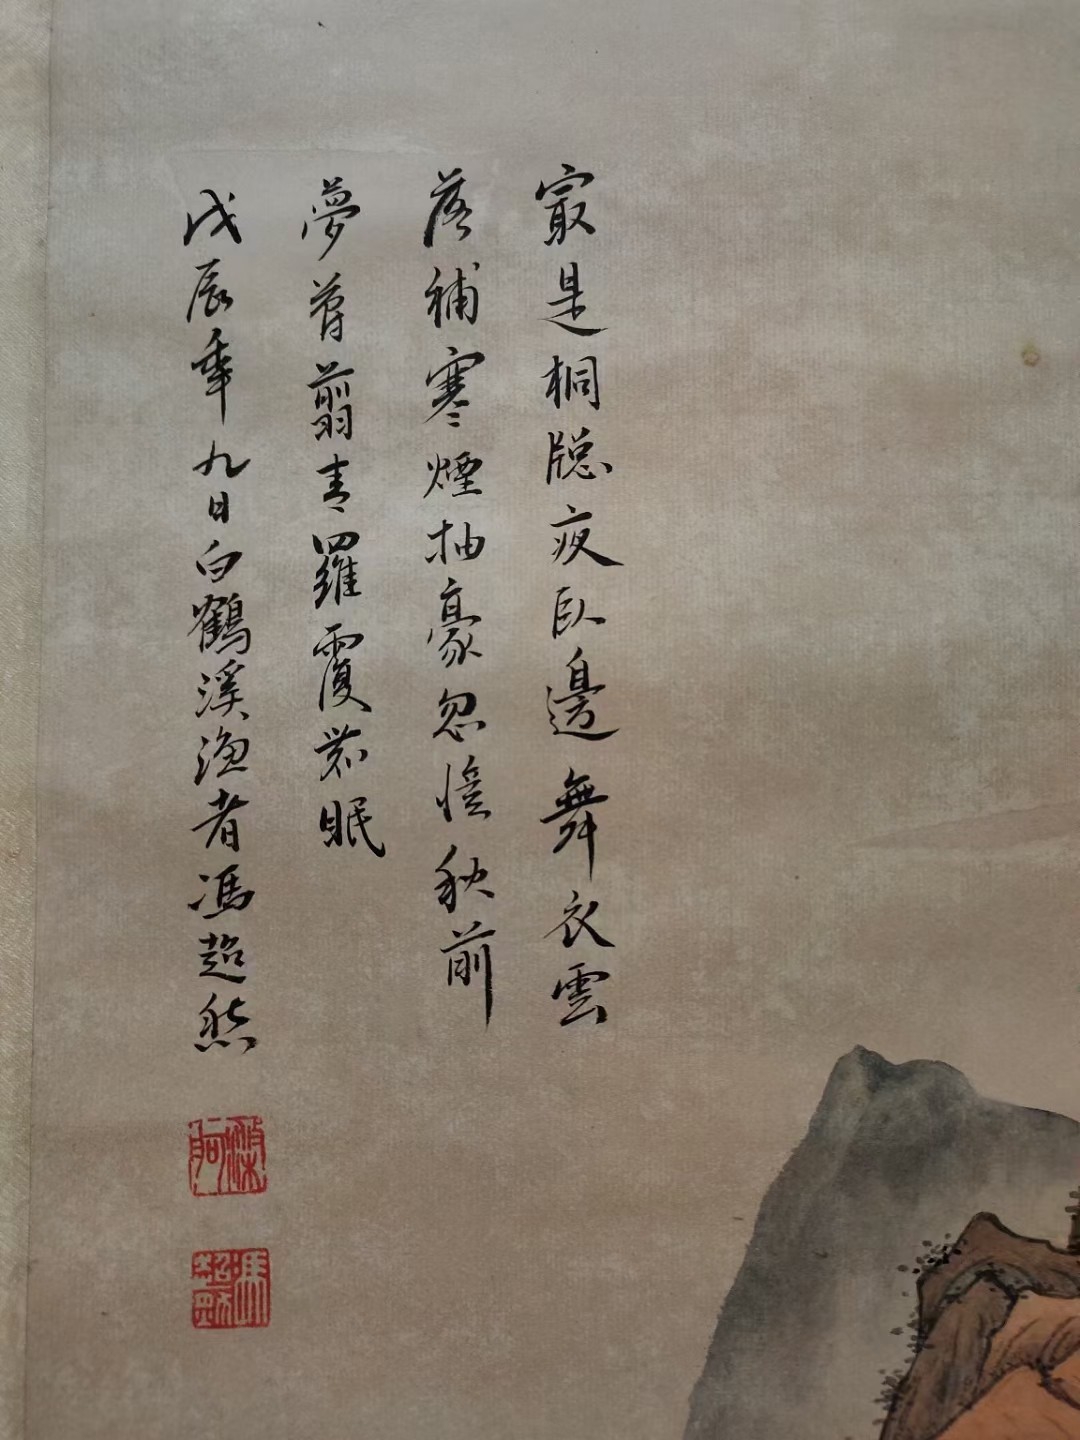 寂是桐牕夜臥邊舞衣雲
落補寒煙抽豪忽憶秋前
夢曾翦青羅覆鹿眠
戊辰年九日白鶴溪漁者馮超然
馮超然